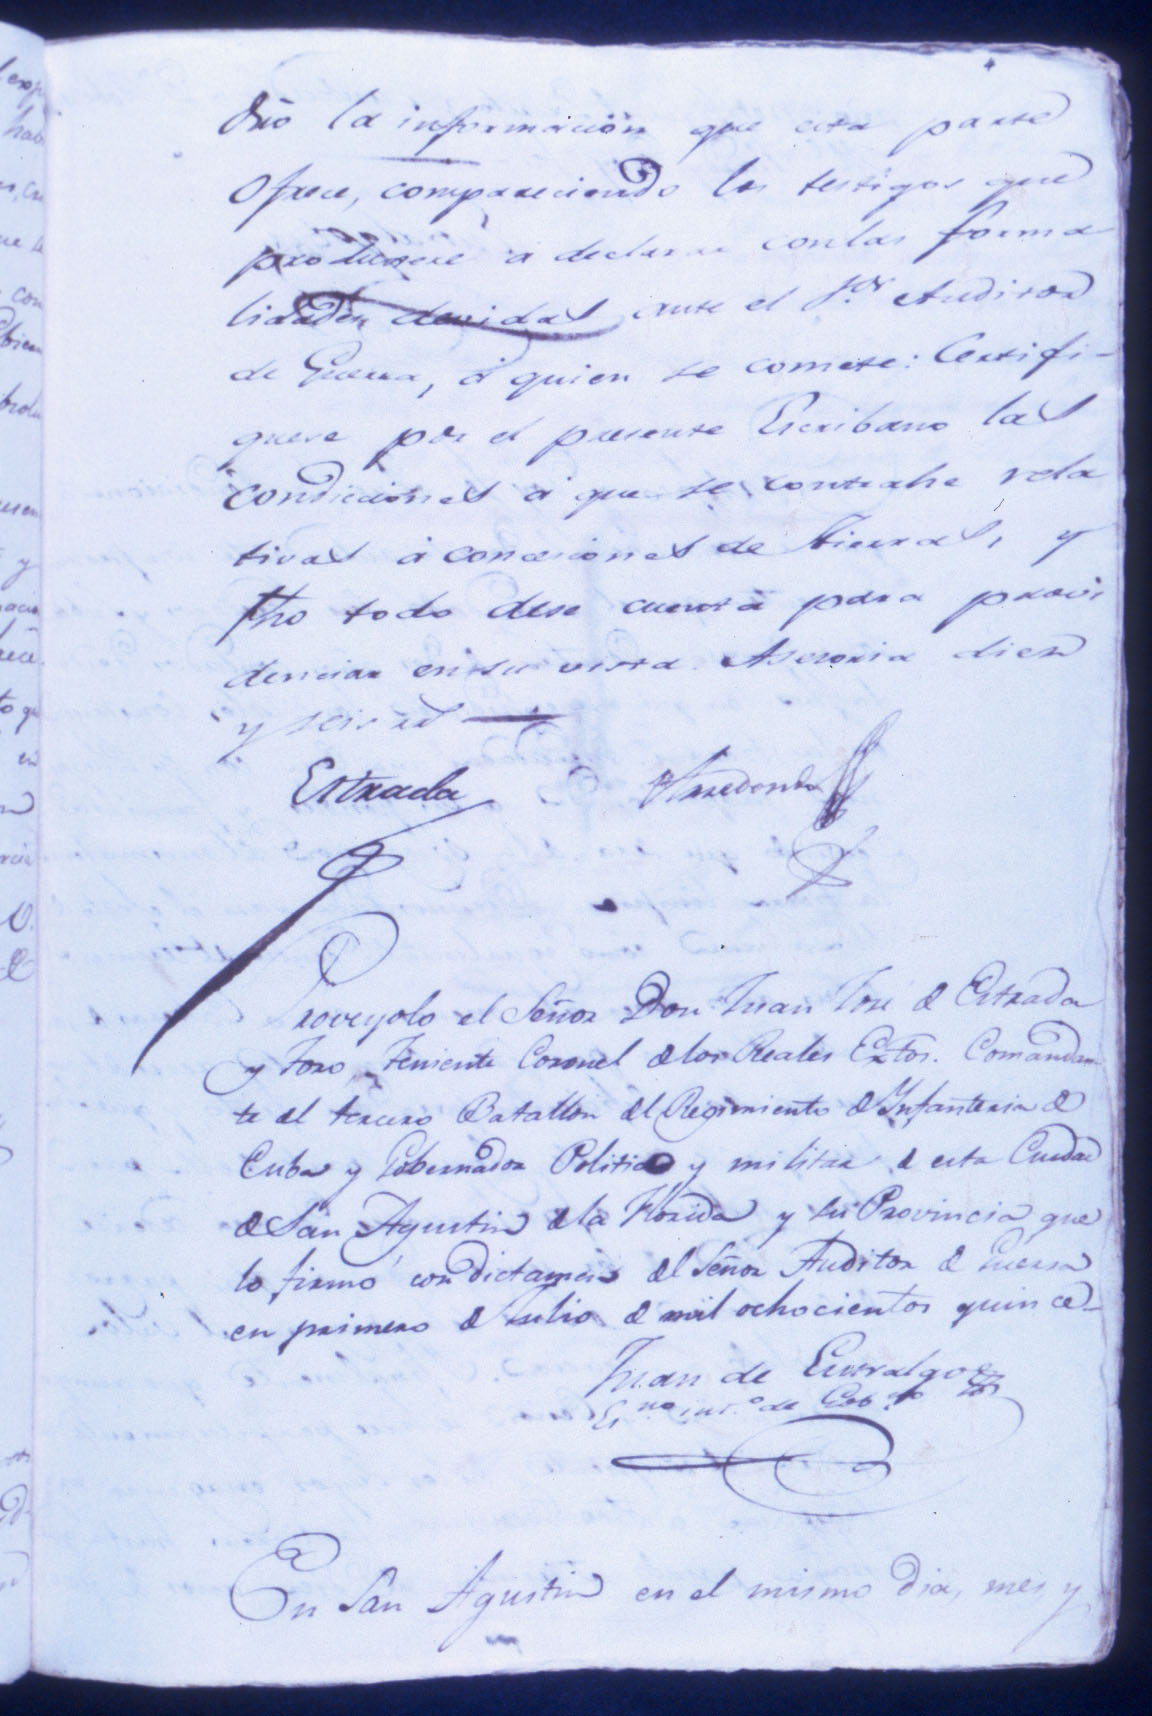 la información que esta parte
ofrece, compareciendo los testigos que
produgere a declarar con las forma
lidades devidas ante el S.or Auditor
de Guerra, á quien se comete: Certifi-
quese por el presente Escribano las
condiciones á que se contrahe rela
tivas á concesiones de tierras, y
fho todo dese cuenta para provi
denciar en su vista. Asesoria diez
y seis rs
Estrada Arredondo
Proveyolo el Señor Don Juan José de Estrada
y Toro, Teniente Coronel de los Reales Extos. Comandan
te del tercero Batallon del Regimiento de Ynfanteria de
Cuba y Gobernador Politico y militar de esta Ciudad
de San Agustin de la Florida y su Provincia que
lo firmó con dictamen del Señor Auditor de Guerra
en primero de Julio de mil ochocientos quince-
Juan de Entralgo
Es.no int.o de Gob.no
En San Agustin en el mismo dia, mes, y